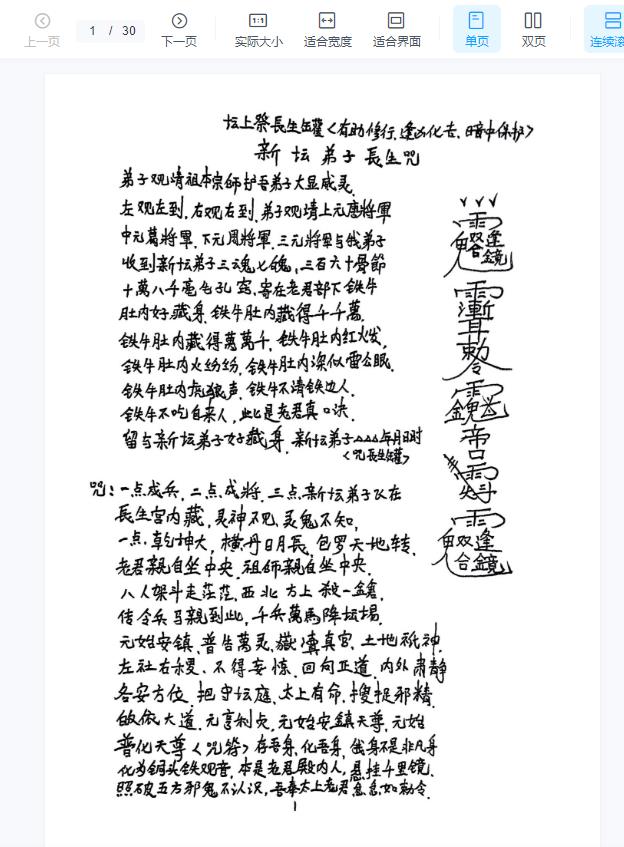 上一页
1 / 30
下一页
1:1
实际大小
适合宽度
适合界面
单页
双页
连续滚
坛上祭長生罐〈有助修行,逢凶化吉、暗中保护〉
新坛弟子長生咒
弟子观請祖本宗師护吾弟子大显威灵
左观左到,右观右到,弟子观請上元唐將軍
中元葛將軍,下元周將軍,三元將軍与俄弟子
收到新坛弟子三魂七魄,三百六十骨節
十萬八千毫毛孔窍,寄在老君部下铁牛
肚内好藏身,铁牛肚内藏得千千萬
铁牛肚内藏得萬萬千,铁牛肚内红火发
铁牛肚内火纷纷,铁牛肚内深似雷公眠
铁牛肚内虎狼声,铁牛不清铁边人
铁牛不吃自来人,此是老君真口决
留与新坛弟子好藏身,新坛弟子△△△年月日时
〈咒長生罐〉
咒:一点成兵,二点成將,三点新坛弟子
長生宫内藏,灵神不见,灵鬼不知,
一点乾坤大,横丹日月長,包罗天地转,
老君親自坐中央,祖師親自坐中央
八人架斗走茫茫,西北方上殺一
传令兵马親到此,千兵萬馬降坛場
元始安镇,普告萬灵,嶽瀆真官,土地祇神
左社右稷、不得妄惊、回向正道,内外肃静
各安方位,把守坛庭、太上有命,搜捉邪精
皈依大道,元亨利贞,元始安鎮天尊,元始
普化天尊〈咒符〉存吾身,化吾身,俄身不是非凡身
化为铜头铁观音,本是老君殿内人,悬挂千里镜
照破五方邪鬼不认识,吾奉太上老君急急如勅令
1